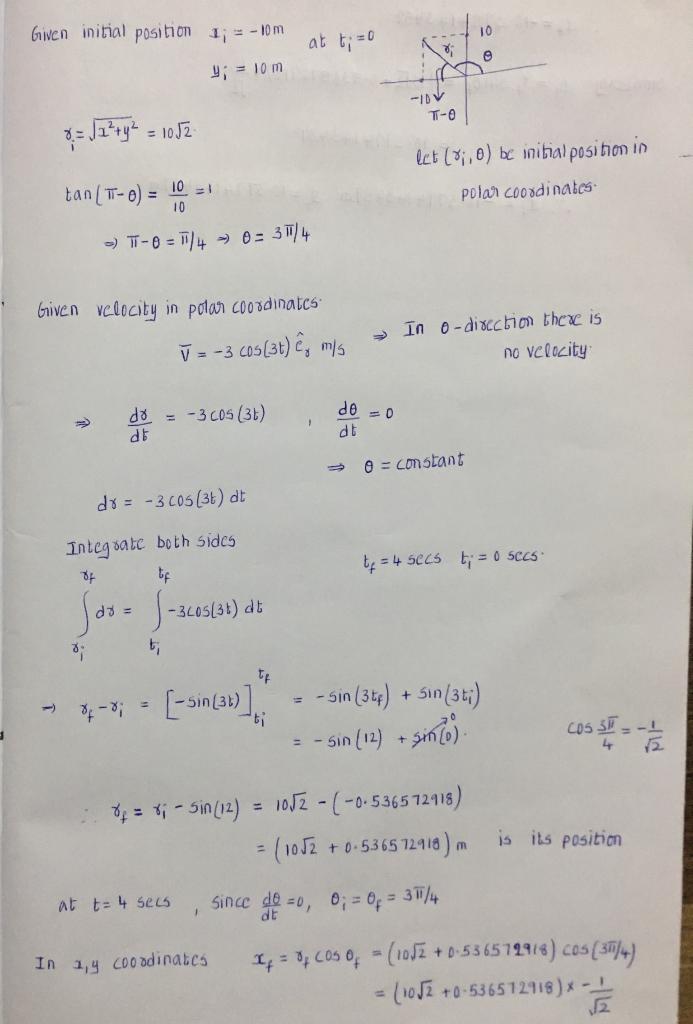 Given initial position x_i = -10 m at t_i = 0
y_i = 10 m
10
r_i θ
-10
π-θ
r_i = √x²+y² = 10√2.
let (r_i, θ) be initial position in
polar coordinates.
tan(π-θ) = 10/10 = 1
⇒ π-θ = π/4 ⇒ θ = 3π/4
Given velocity in polar coordinates.
v̄ = -3 cos(3t) ê_r m/s ⇒ In θ-direction there is
no velocity.
⇒ dr/dt = -3 cos(3t) , dθ/dt = 0
⇒ θ = constant
dr = -3 cos(3t) dt
Integrate both sides
t_f = 4 secs t_i = 0 secs.
∫_{r_i}^{r_f} dr = ∫_{t_i}^{t_f} -3cos(3t) dt
⇒ r_f - r_i = [-sin(3t)]_{t_i}^{t_f} = -sin(3t_f) + sin(3t_i)
= -sin(12) + sin(0)⁰. cos 3π/4 = -1/√2
∴ r_f = r_i - sin(12) = 10√2 - (-0.536572918)
= (10√2 + 0.536572918) m is its position
at t = 4 secs , since dθ/dt = 0, θ_i = θ_f = 3π/4
In x,y coordinates x_f = r_f cos θ_f = (10√2 + 0.536572918) cos(3π/4)
= (10√2 + 0.536572918) × -1/√2